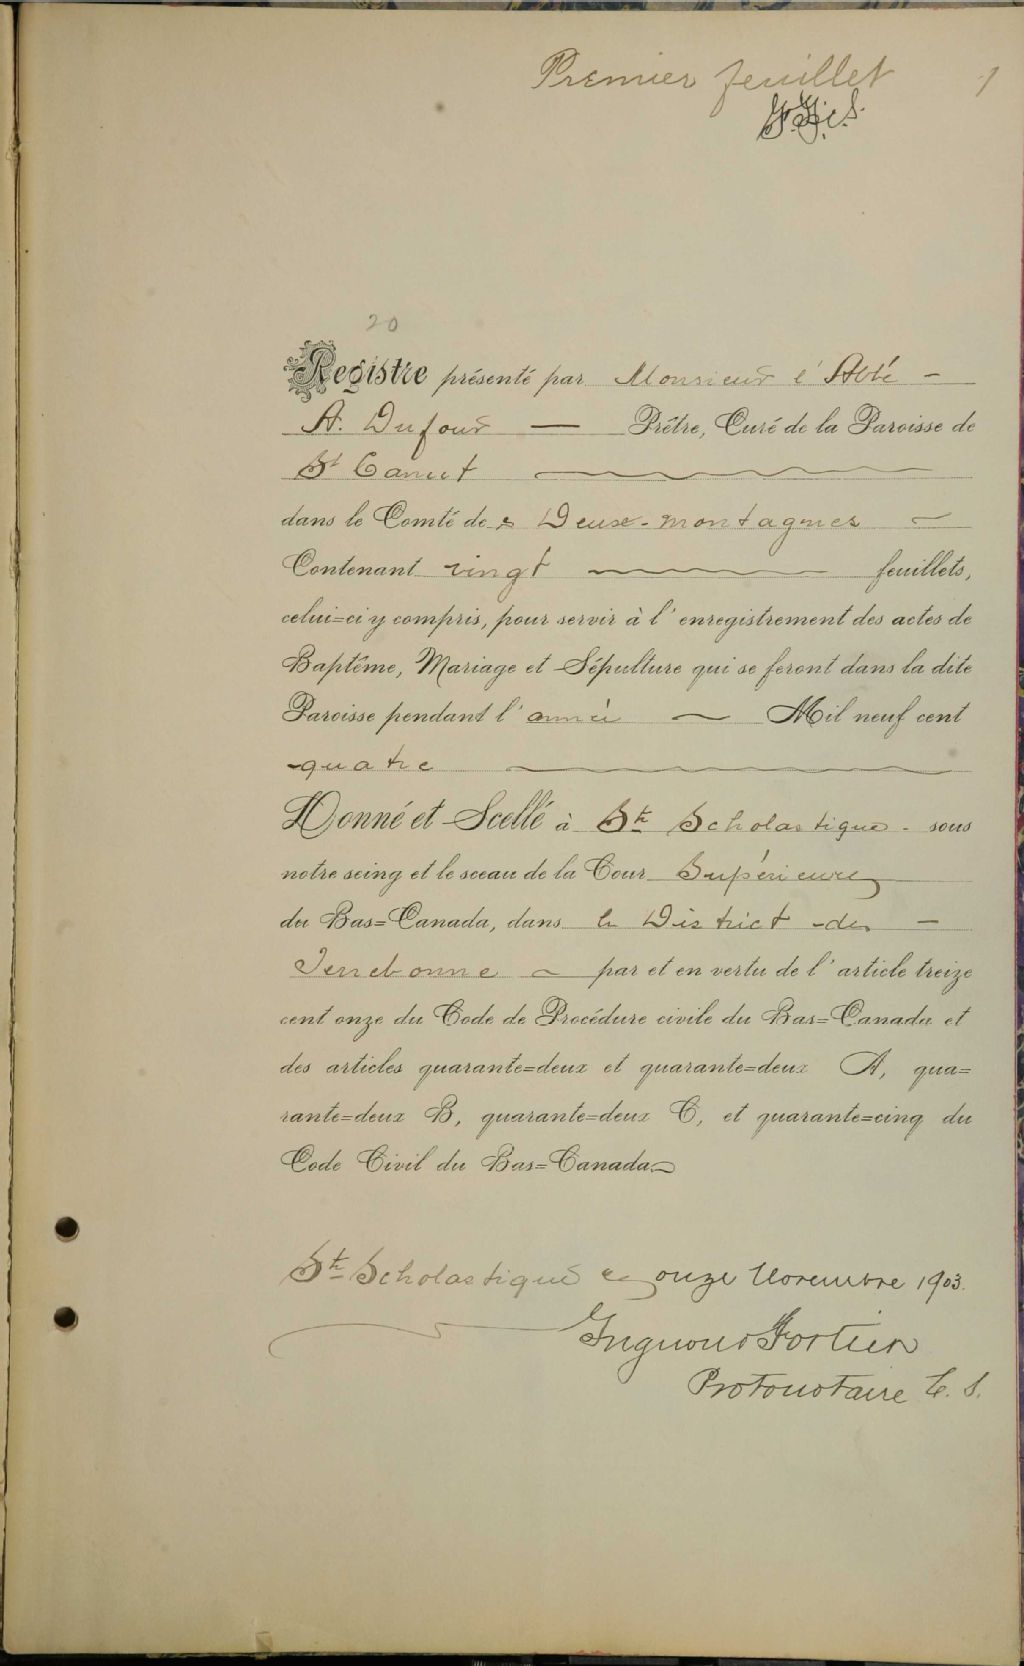 Premier feuillet 1
20
Registre présenté par Monsieur l'Abbé -
A. Dufour — Prêtre, Curé de la Paroisse de
St Canut
dans le Comté de s Deux-montagnes
Contenant vingt feuillets,
celui=ci y compris, pour servir à l'enregistrement des actes de
Baptême, Mariage et Sépulture qui se feront dans la dite
Paroisse pendant l'année — Mil neuf cent
quatre
Donné et Scellé à Ste Scholastique - sous
notre seing et le sceau de la Cour Supérieure
du Bas=Canada, dans le District de -
Terrebonne — par et en vertu de l'article treize
cent onze du Code de Procédure civile du Bas=Canada et
des articles quarante=deux et quarante=deux A, qua=
rante=deux B, quarante=deux C, et quarante=cinq du
Code Civil du Bas=Canada
Ste Scholastique ce onze Novembre 1903.
Fortier
Protonotaire C. S.